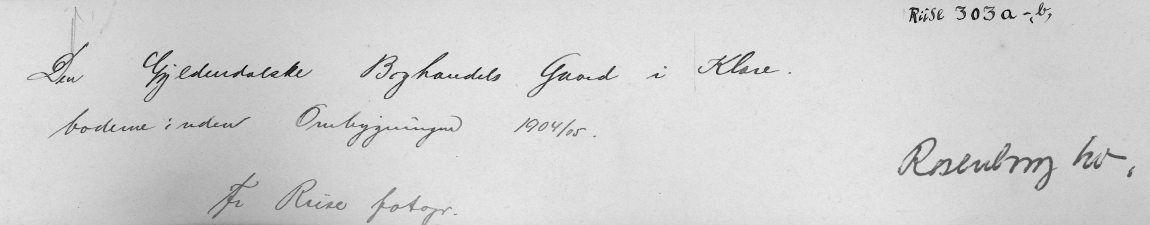 Riise 303a-b,
Den Gyldendalske Boghandels Gaard i Klare.
boderne inden Ombygningen 1904/05.
Rosenborg kv.
Fr Riise fotogr.